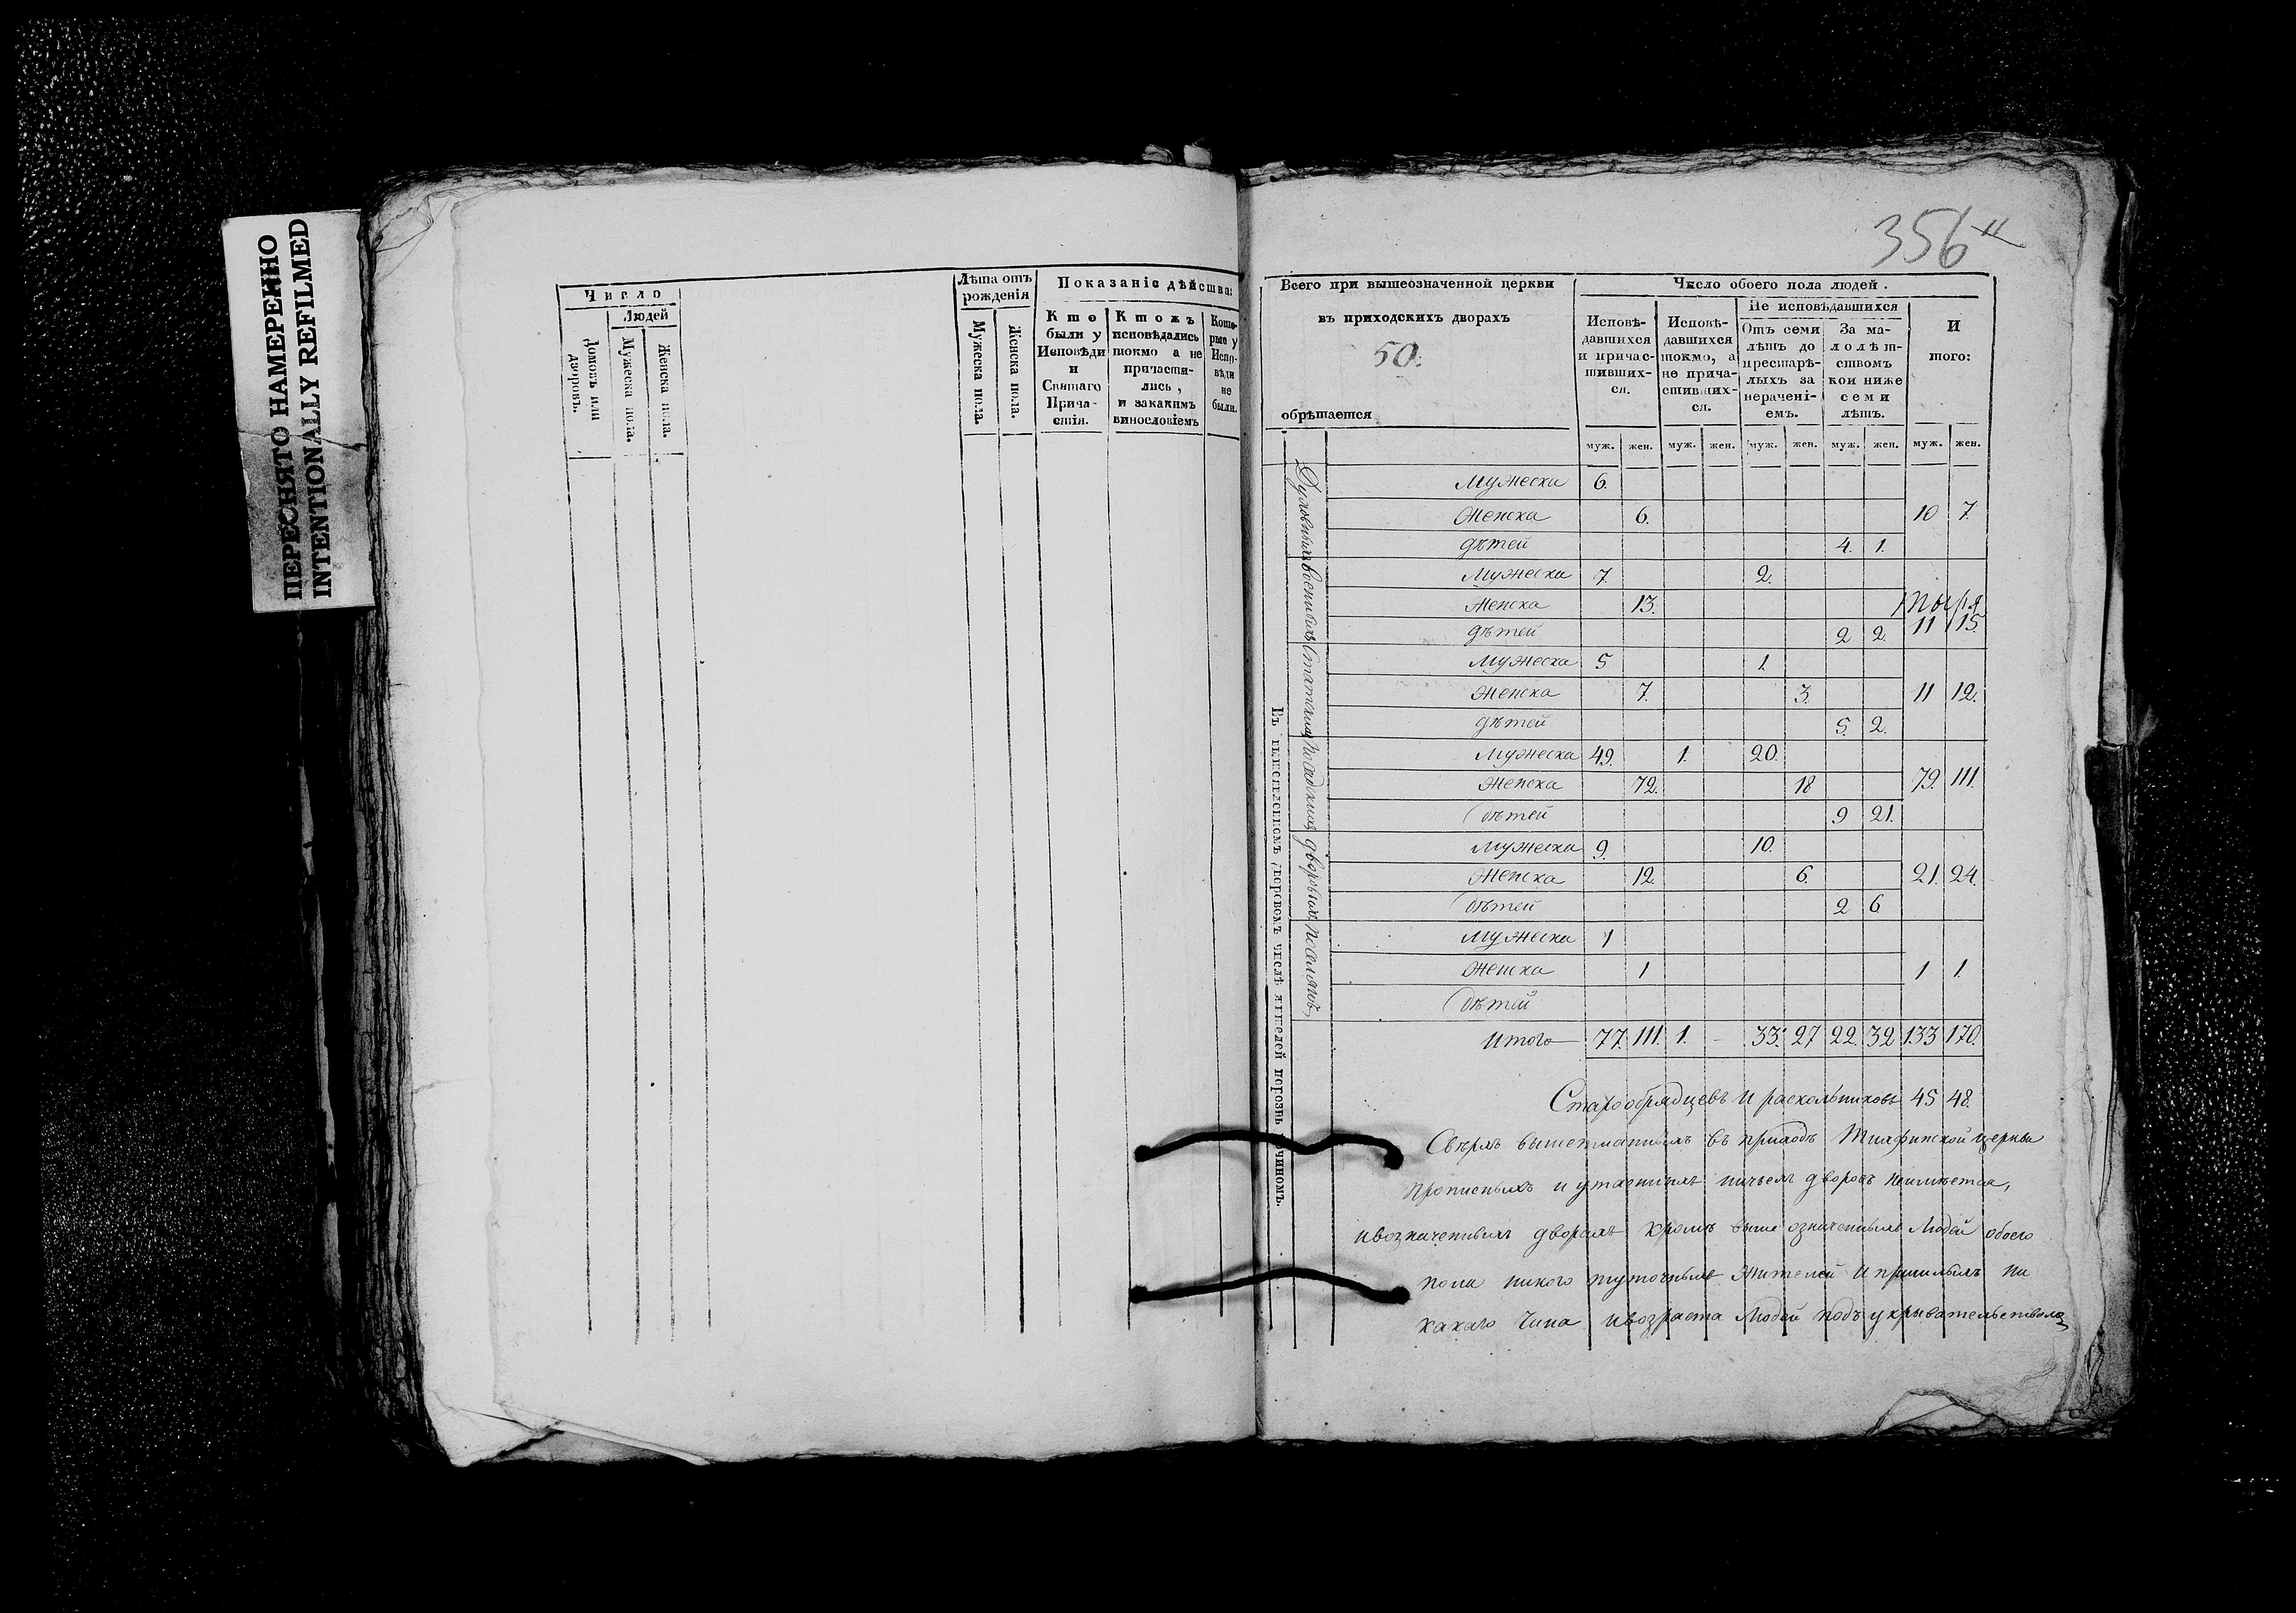 ПЕРЕСНЯТО НАМЕРЕННО
INTENTIONALLY REFILMED
356
Число
Людей
Домовъ или дворовъ.
Мужеска пола.
Женска пола.
Лѣта отъ рожденія
Мужеска пола.
Женска пола.
Показаніе дѣйства:
Кто были у Исповѣди и Святаго Прича-стія.
Ктожъ исповѣдались токмо а не причасти-лись, и закакимъ винословіемъ
Кото-рые у Испо-вѣди не были.
Всего при вышеозначенной церкви
въ приходскихъ дворахъ
50.
обрѣтается
Число обоего пола людей.
Исповѣ-давшихся и причас-тивших-ся.
Исповѣ-давшихся токмо, а не прича-стивших-ся.
Не исповѣдавшихся
Отъ семи лѣтъ до престарѣ-лыхъ за нерачені-емъ.
За ма-лолѣт-ствомъ кои ниже семи лѣтъ.
И того:
муж. жен. муж. жен. муж. жен. муж. жен. муж. жен.
Духовныхъ
Мужеска 6.
Женска 6. 10 7.
дѣтей 4. 1.
Военныхъ
Мужеска 7. 2.
Женска 13.
дѣтей 2 2. 11 15.
Статскихъ
Мужеска 5 1.
Женска 7. 3. 11 12.
дѣтей 5. 2.
Посадскихъ
Мужеска 49. 1. 20.
Женска 72. 18 79. 111.
дѣтей 9 21.
дворовыхъ
Мужеска 9. 10.
Женска 12. 6. 21. 24.
дѣтей 2 6
Поселянъ
Мужеска 1
Женска 1 1 1
дѣтей
Итого 77. 111. 1. – 33. 27 22. 32 133 170.
Старообрядцевъ и раскольниковъ 45 48.
церкви
прописныхъ и утаенныхъ дворовъ неимѣется,
дворахъ кромѣ выше означенныхъ Людей обоего
пола никого Жителей и пришлыхъ ни
какого чина ивозраста Людей подъ укрывательствомъ